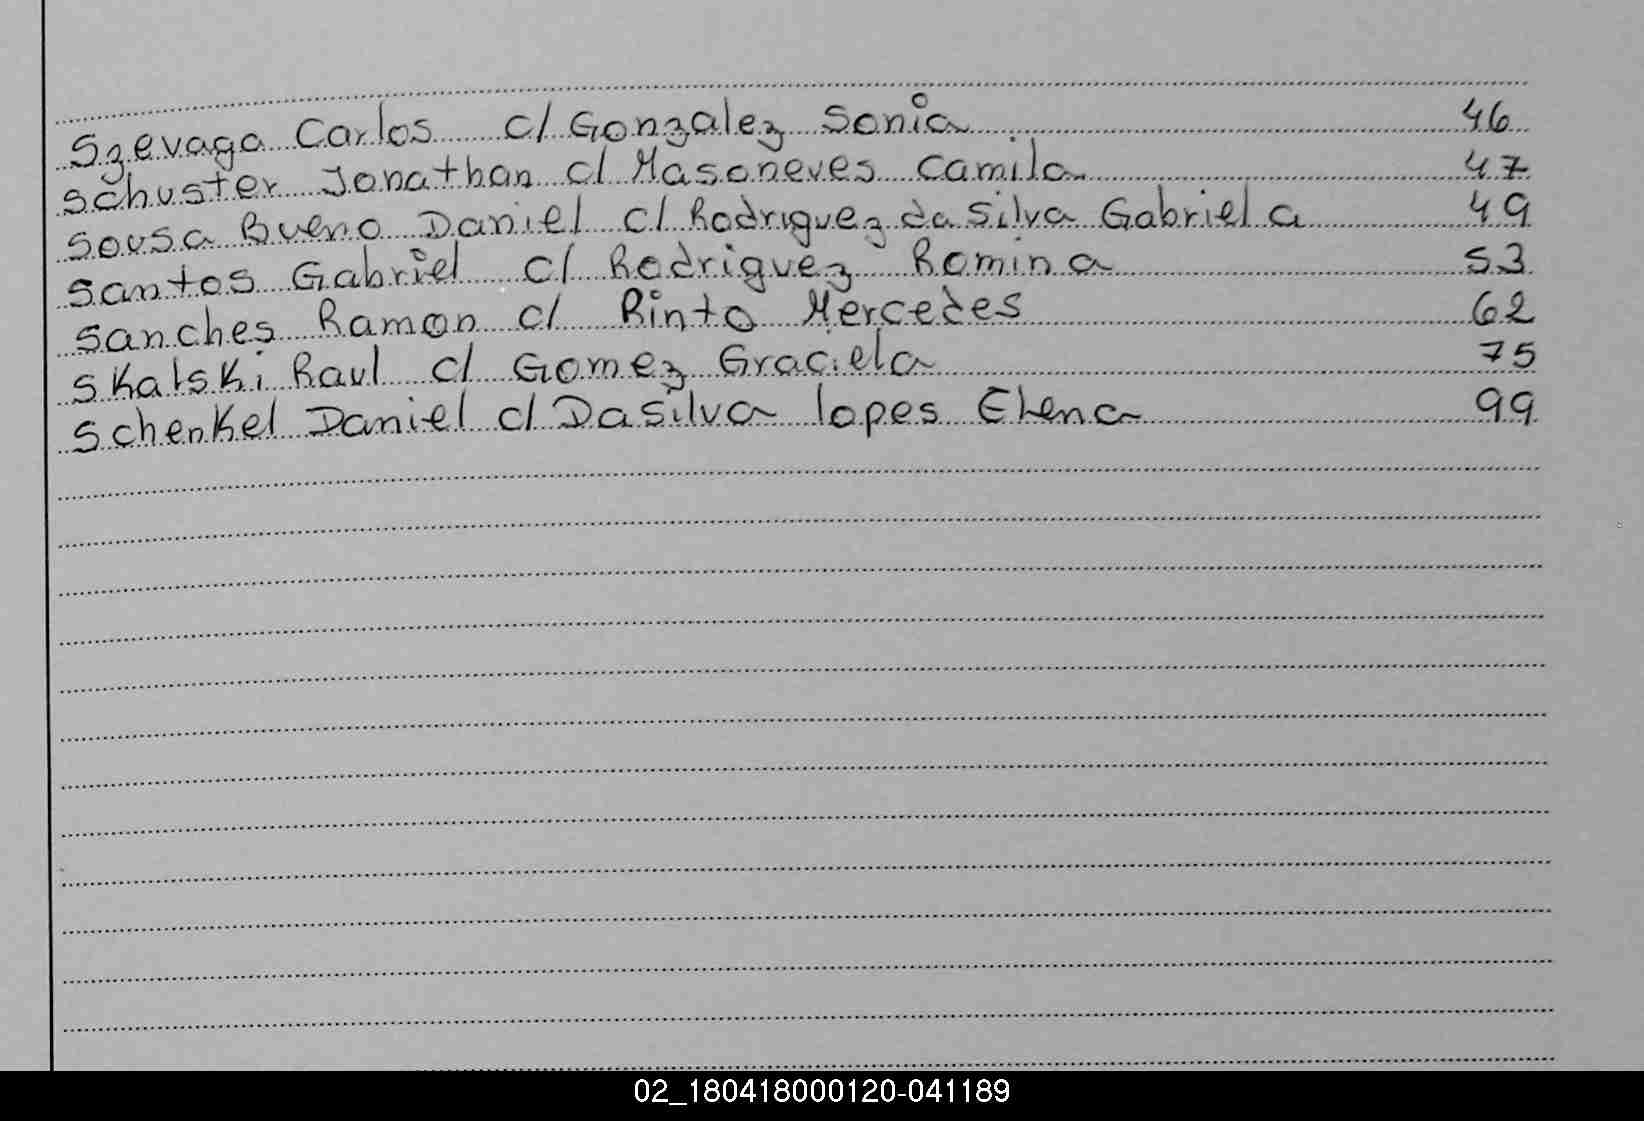 Szevaga Carlos c/ Gonzalez Sonia 46
Schuster Jonathan c/ Masoneves Camila 47
Sousa Bueno Daniel c/ Rodriguez da Silva Gabriela 49
Santos Gabriel c/ Rodriguez Romina 53
Sanches Ramon c/ Pinto Mercedes 62
Skalski Raul c/ Gomez Graciela 75
Schenkel Daniel c/ Dasilva lopes Elena 99
02_180418000120-041189